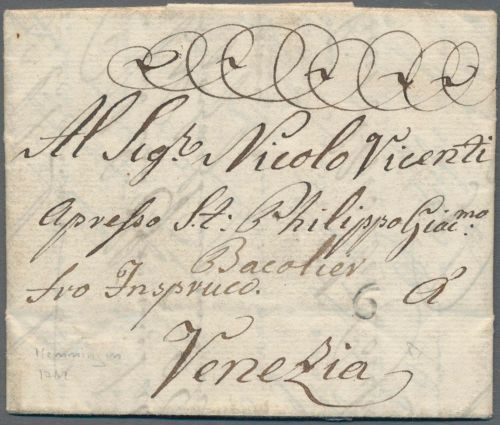 Al Sigr. Nicolo Vicenti
apresso S.t: Philippo Giac:mo
Bacolier
fro Inspruco. 6 á
Venezia
Memmingen